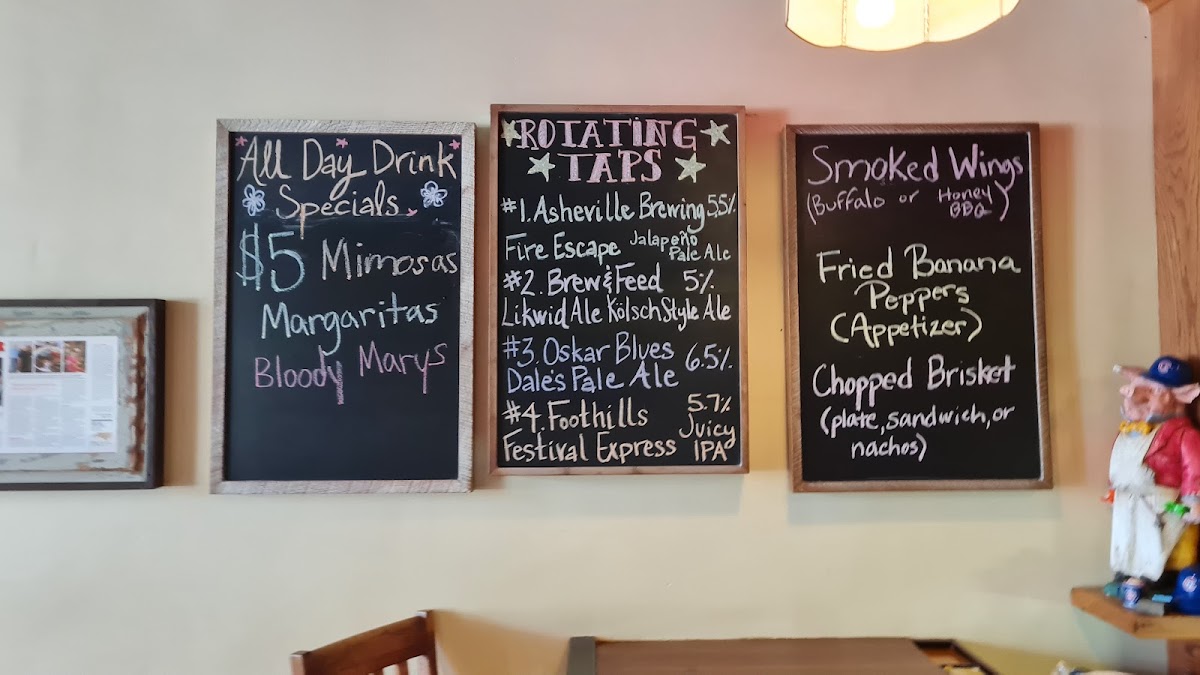 All Day Drink
Specials
$5 Mimosas
Margaritas
Bloody Marys
ROTATING
TAPS
#1. Asheville Brewing 5.5%
Fire Escape Jalapeño Pale Ale
#2. Brew & Feed 5%
Likwid Ale Kölsch Style Ale
#3. Oskar Blues
Dale's Pale Ale 6.5%
#4. Foothills 5.7%
Festival Express Juicy IPA
Smoked Wings
(Buffalo or Honey BBQ)
Fried Banana
Peppers
(Appetizer)
Chopped Brisket
(plate, sandwich, or
nachos)